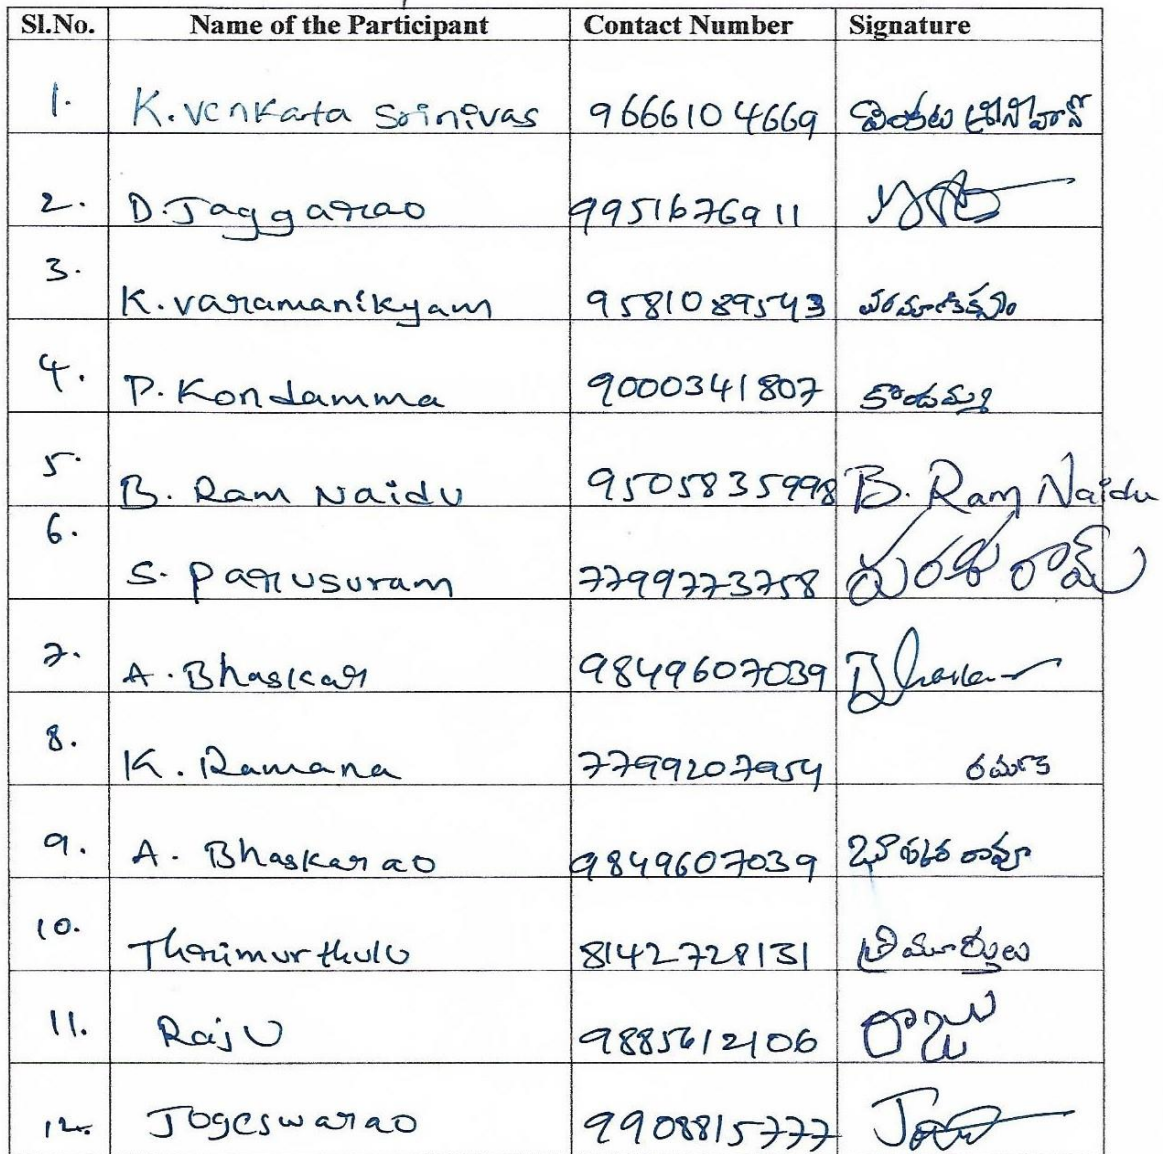 Sl.No. Name of the Participant Contact Number Signature
1. K. Venkata Srinivas 9666104669 వెంకట శ్రీనివాస్
2. D. Jaggarao 9951676911
3. K. varamanikyam 9581089543 వరమాణిక్యం
4. P. Kondamma 9000341807 కొండమ్మ
5. B. Ram Naidu 9505835998 B. Ram Naidu
6. S. Parusuram 7799773758 పరశురామ్
7. A. Bhaskar 9849607039 Bhaskar
8. K. Ramana 7799207954 రమణ
9. A. Bhaskarao 9849607039
10. Thrimurthulu 8142728131 త్రిమూర్తులు
11. Raju 9885612106 రాజు
12. Jogeswarao 9908815777